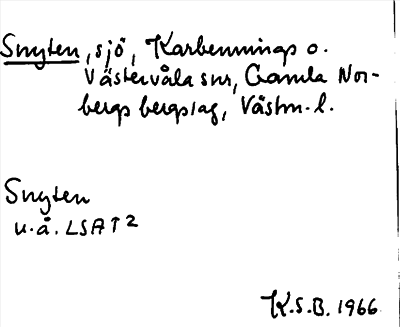 Snyten, sjö, Karbennings o.
Västervåla snr, Gamla Nor-
bergs bergslag, Västm. l.
Snyten
u.å. LSA T2
K.S.B. 1966